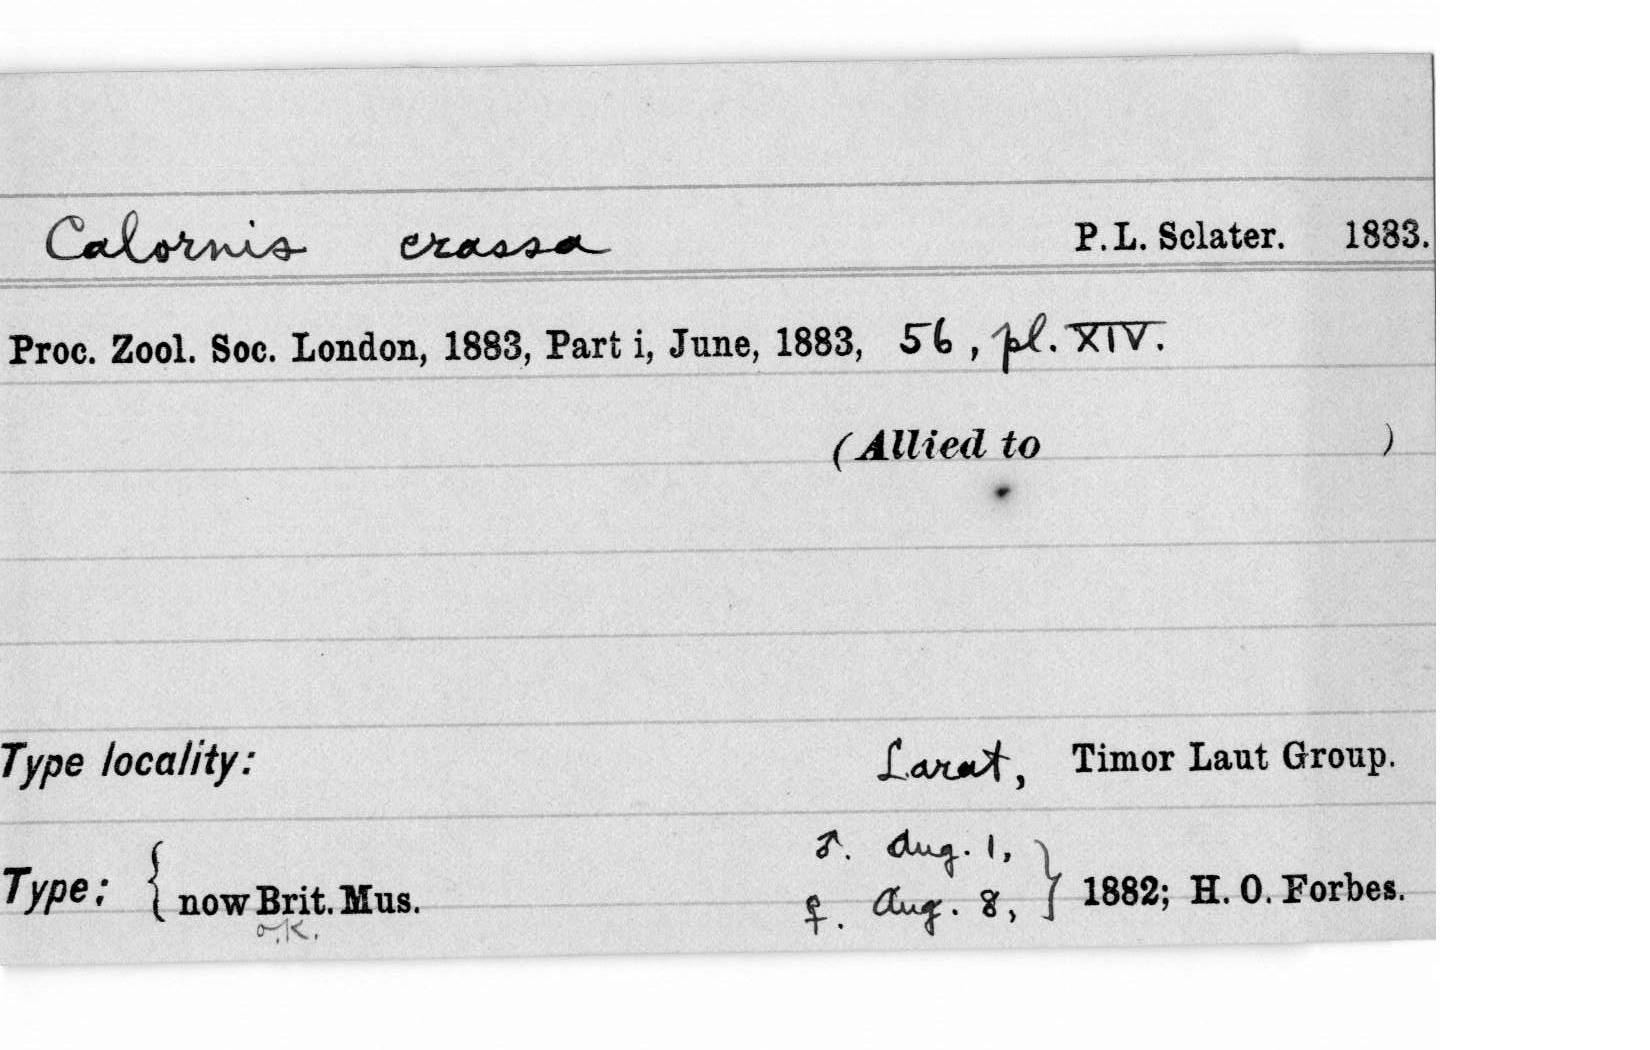 Calornis crassa P. L. Sclater. 1883.
Proc. Zool. Soc. London, 1883, Part i, June, 1883, 56, pl. XIV.
(Allied to )
Type locality: Larat, Timor Laut Group.
♂. Aug. 1,
Type: { now Brit. Mus. ♀. Aug. 8, } 1882; H. O. Forbes.
o.K.